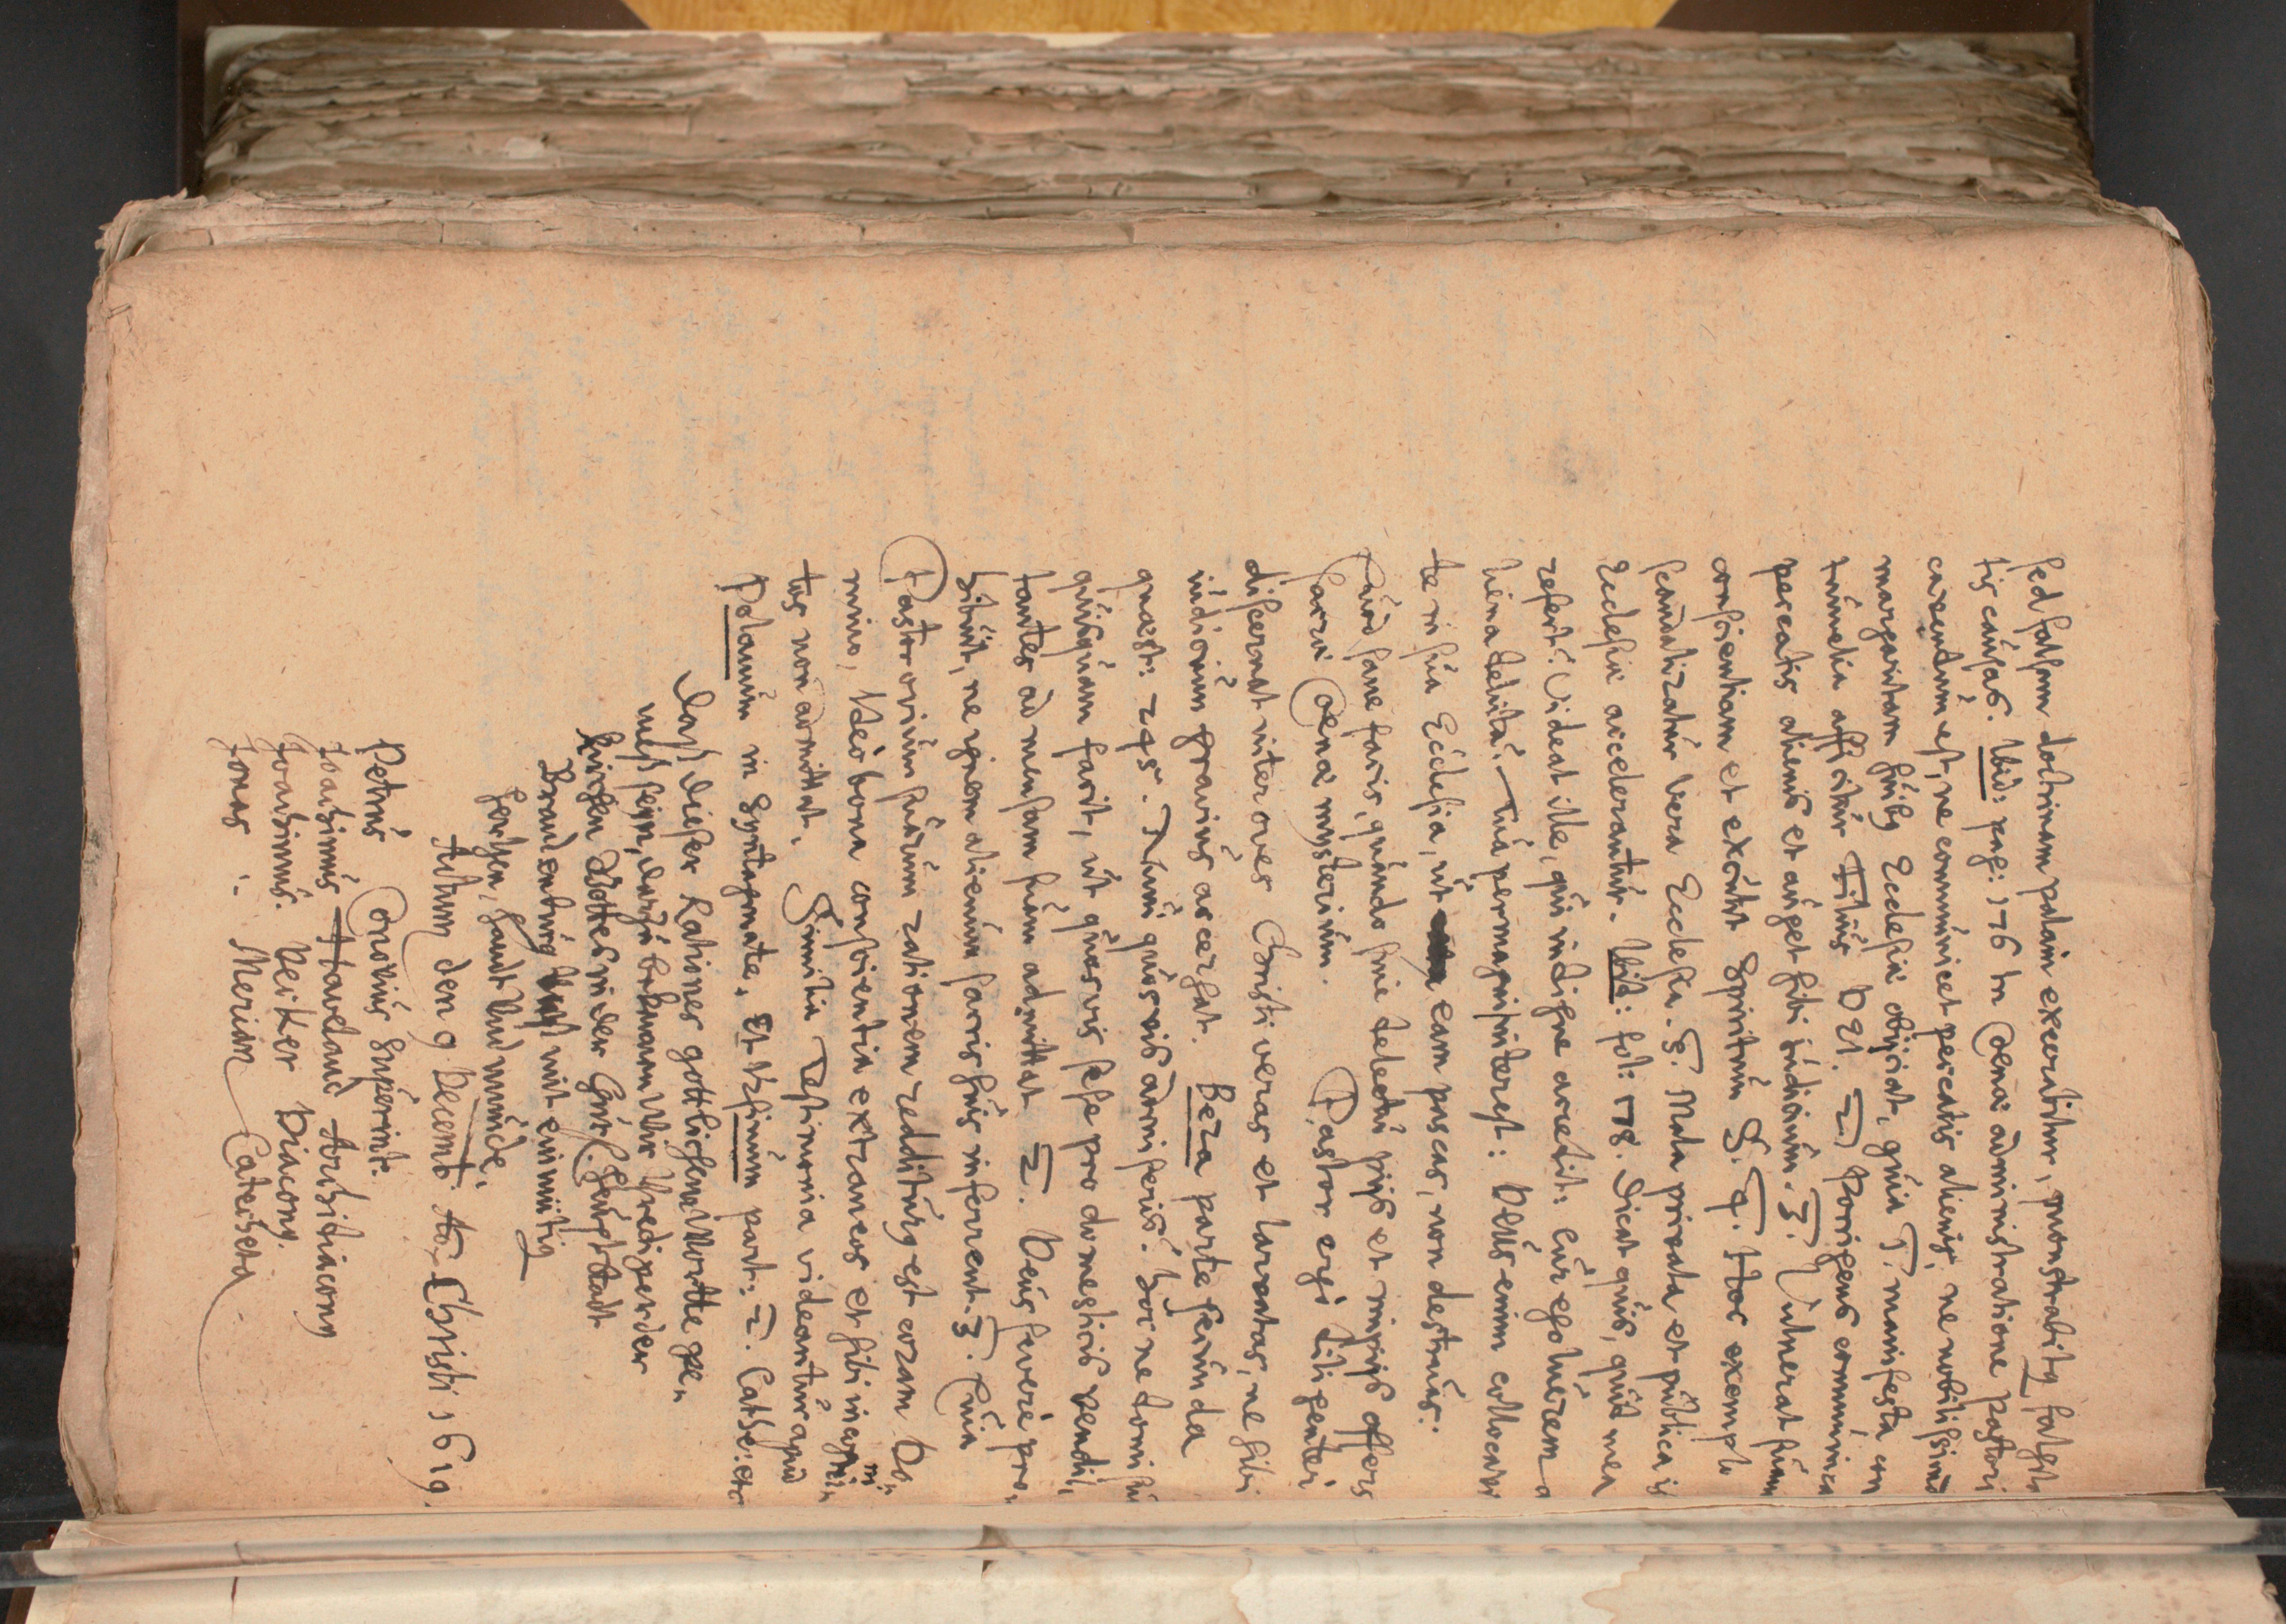 sed falsam doctrinam palàm execratitur, monstrabitq falsita
tis causas. Ibid: pag: 176 In Cenae administratione pastori
cavendum est, ne communicet peccatis alienis, ne nobilissima
margaritam suibq Ecclesiae obijciat, quia 1. manifesta con
tumelia afficitur Filius DEI. 2. Porrigens communica
peccatis alienis et auget sibi iudicium. 3. Vulnerat suam
conscientiam et excutit Spiritum S. 4. Hoc exemplo
scandalizatur vera Ecclesia. 5. Mala privata et publica is
Ecclesiae accelerantur. Ibid: fol: 178. Dicat quis, quid mea
refert? Videat ille, qui indigne accedit: Cur ego luerem a
liena delicta? Tuâ permagni interest: DEUS enim collocavit
te in sua Ecclesia, ut eam pascas, non destruas:
Quod sane facis, quando sine delectu pijs et impijs offers
sacra Cenae mysterium. Pastor ergò diligenter
discernat inter oves Christi veras et larvatas, ne sibi
iudicium gravius arcersat. Beza parte secunda
quaest: 245. Num quosvis admiseris? Hoc ne domi su
quisquam facit, ut quosvis sese pro domesticis vendi,
tantes ad mensam suam admittat 2. Deus severè pro,
hibuit, ne ignem alienum sacris suis inferrent. 3. Quia
Pastorium suarum rationem redditurq est coram Do,
mino, Ideò bona conscientia extraneos et sibi incogni,
tos non admittat. Similia Testimonia videantur apud
Polanum in Syntagmate, Et Vrsinum part: 2. Cathe: etc
Dass dieser Rationes gottlichem Wortte ge,
mess sein, dartzu bekennen Wir Prediger der
kirchen Gottes in der Churf. Heuptstadt
Brandenburg mit einmütig
hertzen, handt vnd munde.
Actum den 9 Decemb. Ao. Christi 1619.
Petrus Conovius Superint:
Joachimus Havelland Archidiaconq
Joachimus. Neiker Diaconq.
Jonas :. Merian Catecheta.